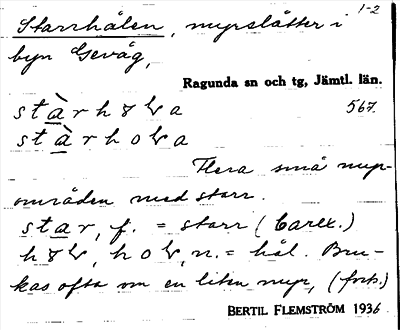 1-2
Starrhålen, myrslåtter i
byn Gevåg,
Ragunda sn och tg, Jämtl. län.
567.
Flera små myr-
områden med starr.
star, f. = starr (Carex.)
n. = hål. Bru-
kas ofta om en liten myr, (forts.)
BERTIL FLEMSTRÖM 1936